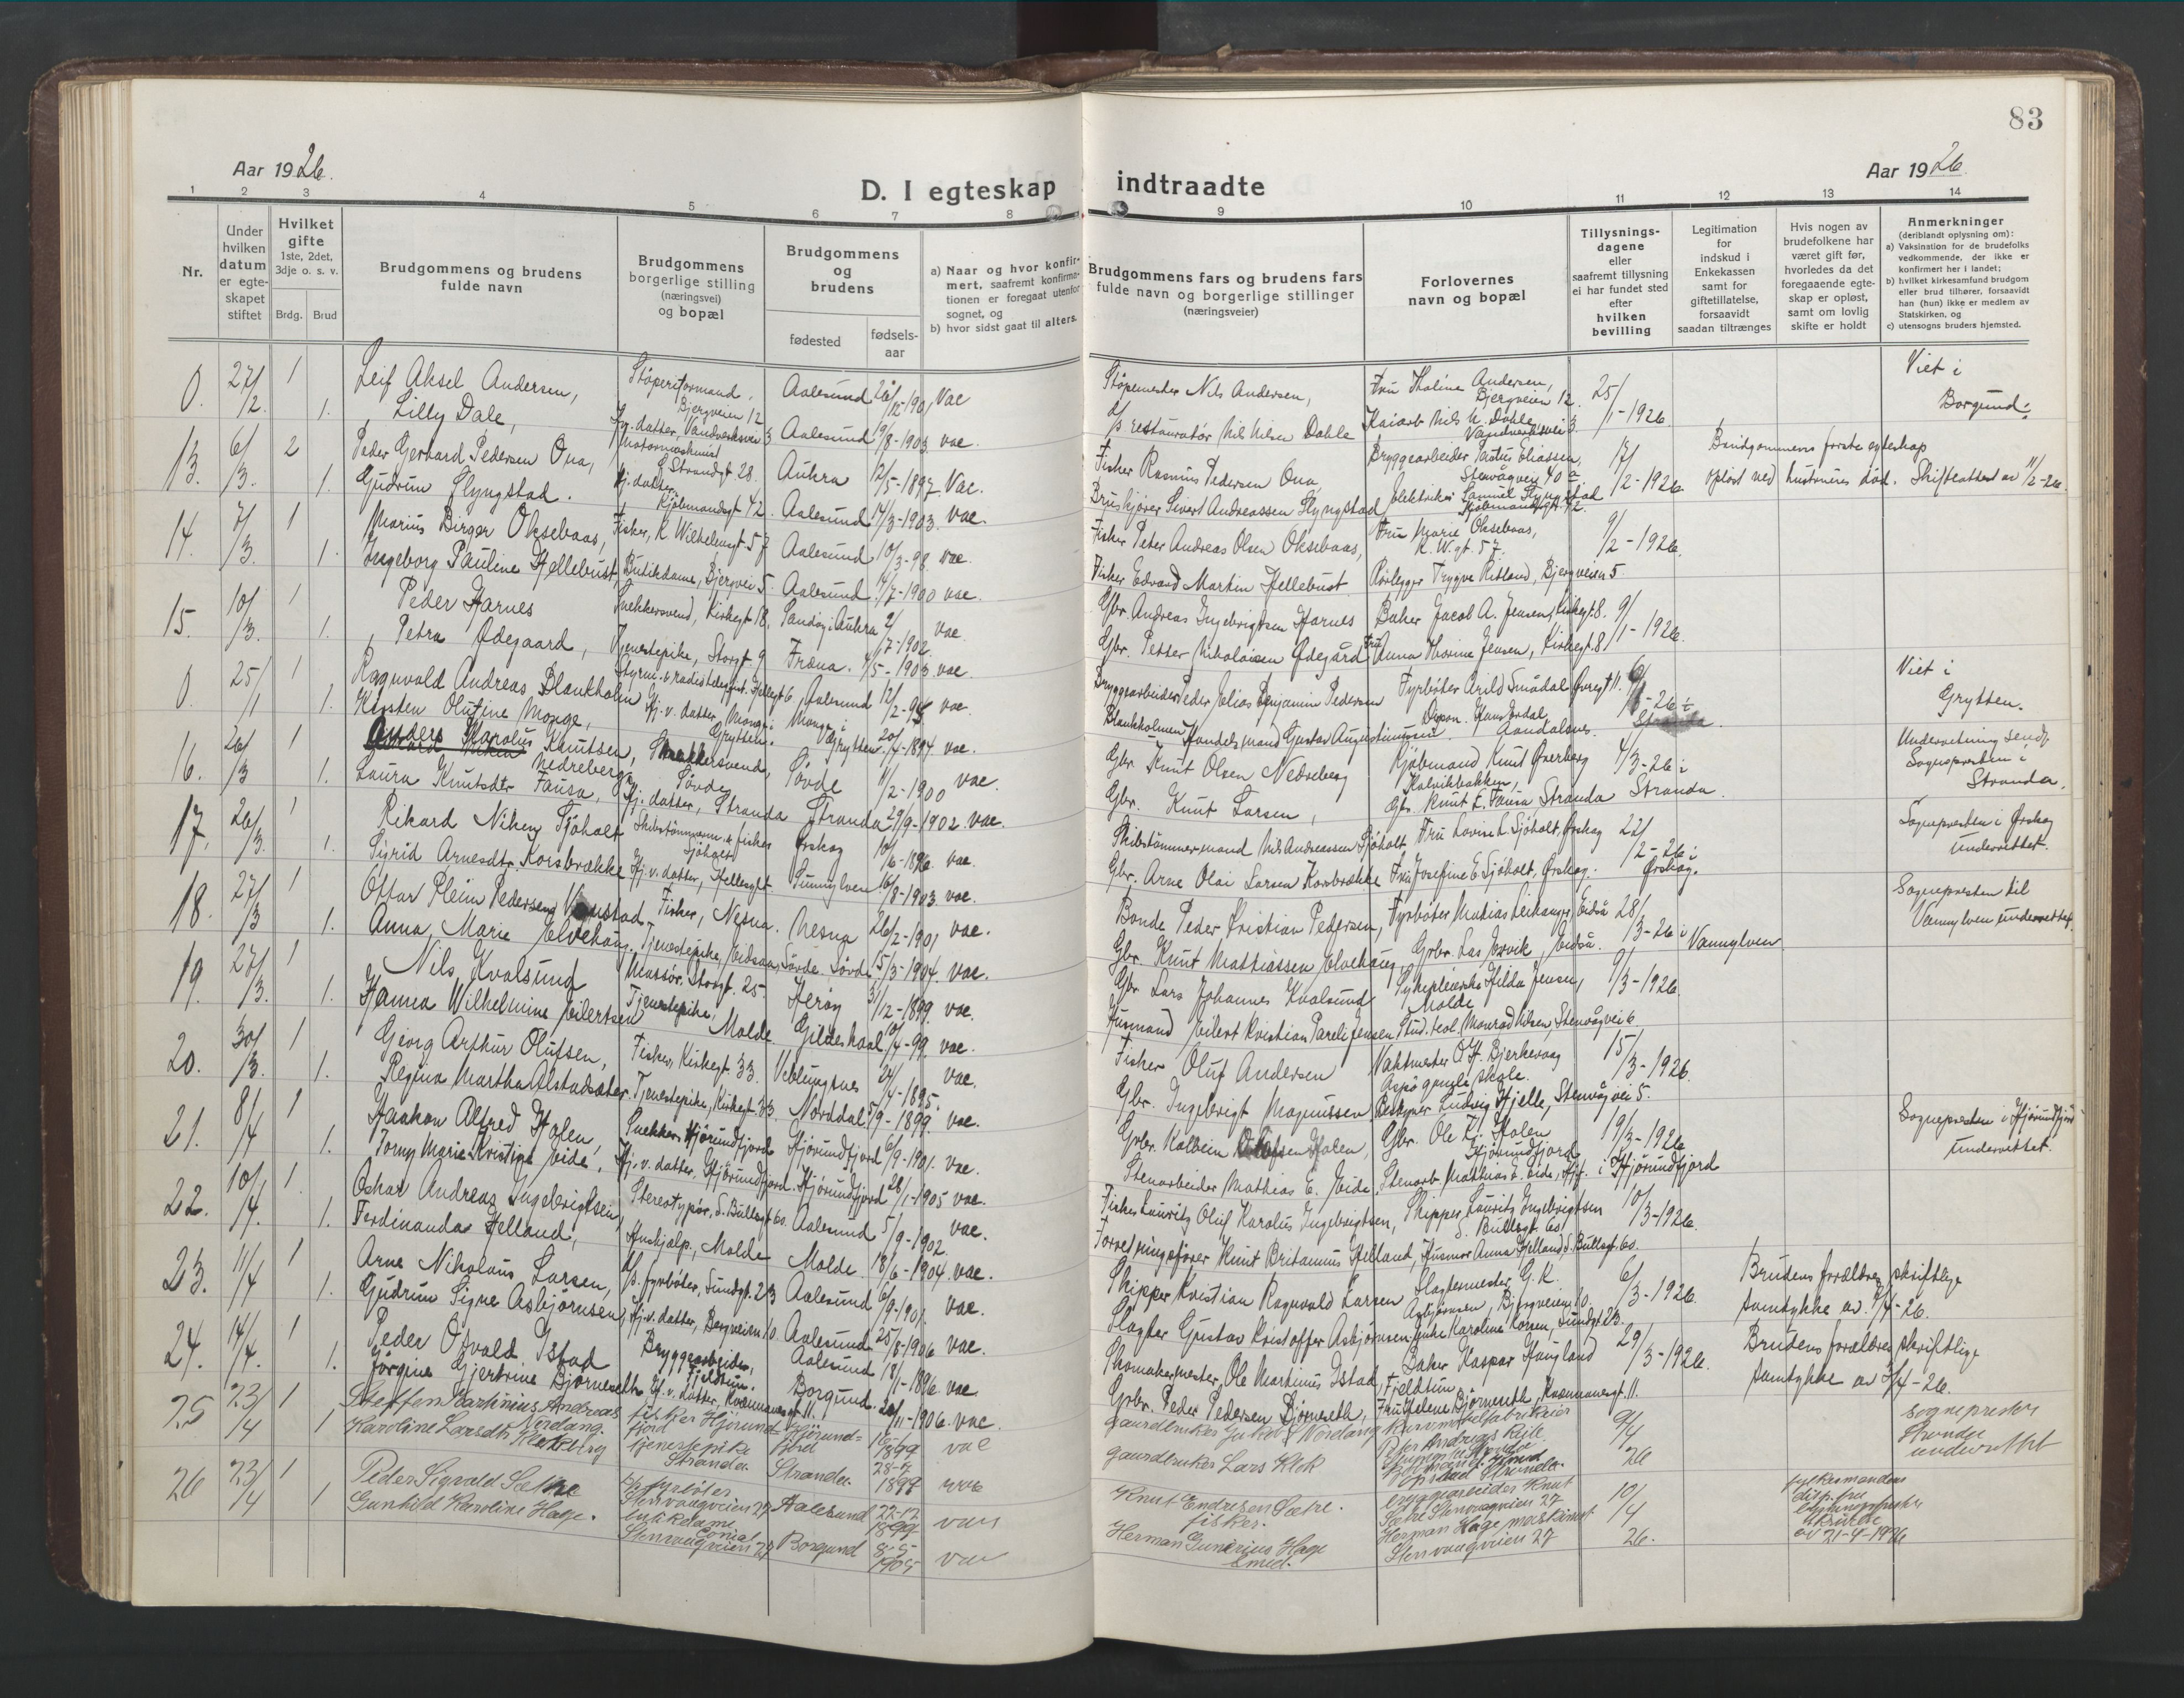 83
Aar 1926.
D. I egteskap indtraadte
Aar 1926
1 2 3 4 5 6 7 8 9 10 11 12 13 14
Nr.
Under hvilken datum er egteskapet stiftet
Hvilket gifte 1ste, 2det, 3dje o. s. v.
Brdg. Brud
Brudgommens og brudens fulde navn
Brudgommens borgerlige stilling (næringsvei) og bopæl
Brudgommens og brudens
fødested
fødselsaar
a) Naar og hvor konfirmert, saafremt konfirmationen er foregaat utenfor sognet, og
b) hvor sidst gaat til alters.
Brudgommens fars og brudens fars fulde navn og borgerlige stillinger (næringsveier)
Forlovernes navn og bopæl
Tillysningsdagene eller saafremt tillysning ei har fundet sted efter hvilken bevilling
Legitimation for indskud i Enkekassen samt for giftetillatelse, forsaavidt saadan tiltrænges
Hvis nogen av brudefolkene har været gift før, hvorledes da det foregaaende egteskap er opløst, samt om lovlig skifte er holdt
Anmerkninger (deriblandt oplysning om):
a) Vaksination for de brudefolks vedkommende, der ikke er konfirmert her i landet;
b) hvilket kirkesamfund brudgom eller brud tilhører, forsaavidt han (hun) ikke er medlem av Statskirken, og
c) utensogns bruders hjemsted.
0. 27/2. 1 Leif Aksel Andersen, Støperiformand, Bjergveien 12 Aalesund 26/12-1901 Vac Støpemester Nils Andersen, Fru Thalina Andersen, Bjergveien 12. 25/1-1926 Viet i Borgund.
1. Lilly Dale, Hj. datter, Vandverksvei 3 Aalesund 9/8-1903. vac. d/s restauratør Nils Nilsen Dahle Kaiarb. Nils N. Dahle Vandverksvei 3.
13. 6/3. 2 Peder Gerhard Pedersen Ona, Motormaskinist S. Strandgt 28. Aukra 12/5-1897. Vac. Fisker Rasmus Pedersen Ona, Bryggearbeider Pastus Eliassen, Stenvågvei 40 a 17/2-1926. Brudgommens første egteskap opløst ved hustruens død. Skifteattest av 11/2-26.
1. Gudrun Slyngstad. Hj. datter, Kjøbmandsgt 42. Aalesund 17/3-1903. vac. Bruskjører Sivert Andreassen Slyngstad Elektriker Samuel Slyngstad Kjøbmandsgt. 42.
14. 7/3. 1 Marius Birger Oksebaas, Fisker, K. Wilhelmsgt. 57 Aalesund 10/3-98. vac. Fisker Peter Andreas Olsen Oksebaas, Fru Marie Oksebaas, K. W. gt. 57. 9/2-1926.
1. Ingeborg Pauline Hellebust, Butikdame, Bjergvei 5. Aalesund 14/7-1900 vac. Fisker Edvard Martin Hellebust Rørlegger Trygve Ristand, Bjergveien 5.
15. 10/3. 1 Peder Harnes Snekkersvend, Kirkegt 18, Sandøy i Aukra 2/7-1902. vac. Gbr. Andreas Ingebrigtsen Harnes Baker Jacob A. Jensen, Kirkegt. 8. 9/1-1926.
1. Petra Ødegaard, Tjenestepike, Storgt. 9 Fræna. 4/5-1903. vac. Gbr. Petter Nikolaisen Ødegård Fru Anna Thorine Jensen, Kirkegt. 8
0 25/1 1 Ragnvald Andreas Blankholm Styrm. & radiotelegraf. Hellegt 6 Aalesund 12/2-94 vac. Bryggearbeider Peder Elias Benjamin Pedersen Blankholmen Fyrbøter Arild Smådal Øvregt 11. Viet i Grytten.
1. Kirsten Olufine Monge, Hj. v. datter, Monge i Grytten. Monge i Grytten. 20/7-1894 vac. Handelsmand Gustav Augustinussen Aandalsnes.
16. 26/3 1 Anders Karolus Knutsen, Nedreberg Snekkersvend, Søvde Søvde 11/2-1900 vac. Gbr. Knut Olsen Nedreberg Kjøbmand Knut Øverberg Kalvikbakken, 4/3-26 i Stranda. Underretning sendt Sognepresten i Stranda.
1. Laura Knutsdtr Fausa, Hj. datter, Stranda Stranda 29/9-1902. vac. Gbr. Knut Larsen, Gbr. Knut L. Fausa Stranda
17. 26/3. 1 Rikard Nikey Sjøholt Skibstømmerm. & fisker Sjøholt Ørskog 10/6-1896. vac. Skibstømmermand Nils Andreassen Sjøholt Fru Lovise L. Sjøholt, Ørskog 22/2-26 i Ørskog. Sognepresten i Ørskog underrettet.
1. Sigrid Arnesdtr. Korsbrække Hj. v. datter, Hellesylt. Sunnylven 16/8-1903. vac. Gbr. Arne Olai Larsen Korsbrække Fru Josefine E. Sjøholt, Ørskog.
18. 27/3 1 Ottar Pleim Pedersen Fisker, Nesna. Nesna 26/2-1901 vac. Bonde Peder Kristian Pedersen, Fyrbøter Mathias Leikanger, Eidså 28/3-26 i Vannylven Sognepresten til Vannylven underrettet.
1. Anna Marie Elvehaug. Tjenestepike, Eidsaa, Søvde. Søvde 15/3-1904. vac. Gbr. Knut Mathiassen Elvehaug, Grbr. Las Jørvik, Eidså.
19. 27/3. 1 Nils Kvalsund Massør. Storgt. 25. Herøy 31/12-1899. vac. Gbr Lars Johannes Kvalsund Sykepleierske Hilda Jensen, Molde 9/3-1926.
1. Hanna Wilhelmine Eilertsen Tjenestepike, Molde Gildeskaal 10/4-99. vac. Husmand Eilert Kristian Pareli Jensen Stud. teol. Monrad Nilsen, Stenvågvei 6
20. 30/3. 1 Georg Arthur Olufsen, Fisker, Kirkegt. 33. Veblungsnes 24/4-1895. vac. Fisker Oluf Andersen Vaktmester O. H. Bjerkevaag Aspø gamle skole. 15/3-1926.
1. Regina Martha Alstadsæter. Tjenestepike, Kirkegt. 33 Norddal 5/9-1899. vac. Gbr. Ingebrigt Magnussen, Bestyrer Ludvig Hjelle, Stenvågvei 5.
21. 8/4 1 Haakon Alfred Holen, Snekker, Hjørundfjord Hjørundfjord 6/9-1901. vac. Grbr. Kolbein Olafsen Holen, Gbr. Ole K. Holen Hjørundfjord 19/3-1926 i Hjørundfjord Sognepresten i Hjørundfjord underrettet.
1. Torny Marie Kristine Eide, Hj. v. datter, Hjørundfjord. Hjørundfjord 28/1-1905 vac. Stenarbeider Mathias E. Eide, Stenarb. Matthias E. Eide, Hjf.
22. 10/4. 1. Oskar Andreas Ingebrigtsen, Stereotypør, S. Bullsgt 60. Aalesund 5/9-1902. vac. Fisker Lauritz Oluf Karolus Ingebrigtsen, Skipper Lauritz Ingebrigtsen S. Bullsgt. 60 10/3-1926.
1. Ferdinanda Helland, Hushjælp, Molde Molde 18/6-1904. vac. Forretningsfører Knut Britanus Helland, Husmor Anna Helland S. Bullsgt. 60.
23. 11/4 1 Arne Nikolaus Larsen, d/s. fyrbøter, Sundgt. 23 Aalesund 6/9-1901. vac. Skipper Kristian Ragnvald Larsen Slagtermester G. K. Asbjørnsen, Bjergveien 10. 6/3-1926. Brudens forældres skriftlige samtykke av 7/4-26.
1. Gudrun Signe Asbjørnsen, Hj. v. datter, Bergveien 10. Aalesund 25/8-1906 vac. Slagter Gustav Kristoffer Asbjørnsen Enke Karoline Larsen, Sundgt 23.
24. 14/4. 1 Peder Osvald Istad Bryggearbeider, Fjeldtun. Aalesund 18/1-1896. vac. Skomakermester Ole Martinus Istad, Baker Kaspar Haugland Fjeldtun, 29/3-1926. Brudens forældres skriftlige samtykke av 3/4-26.
1. Jørgine Gjertrine Bjørneseth Hj. v. datter, Kvennavegt 11. Borgund. 20/11-1906. vac. Grbr. Peder Pedersen Bjørneseth, Fru Helene Bjørneseth, Kvennavegt. 11.
25 23/4 1 Steffen Martinius Andreas Nordang. fisker Hjørundfjord Hjørundfjord 16-1 1899 vac gaardbruker Nordang kurvmøbelfabrikeier Peter Andreas 9/4 26 Sognepresten Stranda underrettet
1 Karoline Larsdtr tjenestepike Stranda. Stranda. 28-7 1899 vac gaardbruker Lars Klok Stranda.
26 23/4 1 Peder Sigvald Sætre d/s fyrbøter Stenvaagveien 27 Aalesund 22-12 1899 vac Knut Endresen Sætre. fisker. bryggearbeider Knut Sætre Stenvaagveien 27 10/4 26. fylkesmandens disp. fra av 21-4-1926
1 Gunhild Karoline Hage. butikdame Stenvaagveien 27 Borgund 8-5- 1905 vac Herman Gunerius Hage Smed. Herman Hage, maskinist Stenvaagveien 27